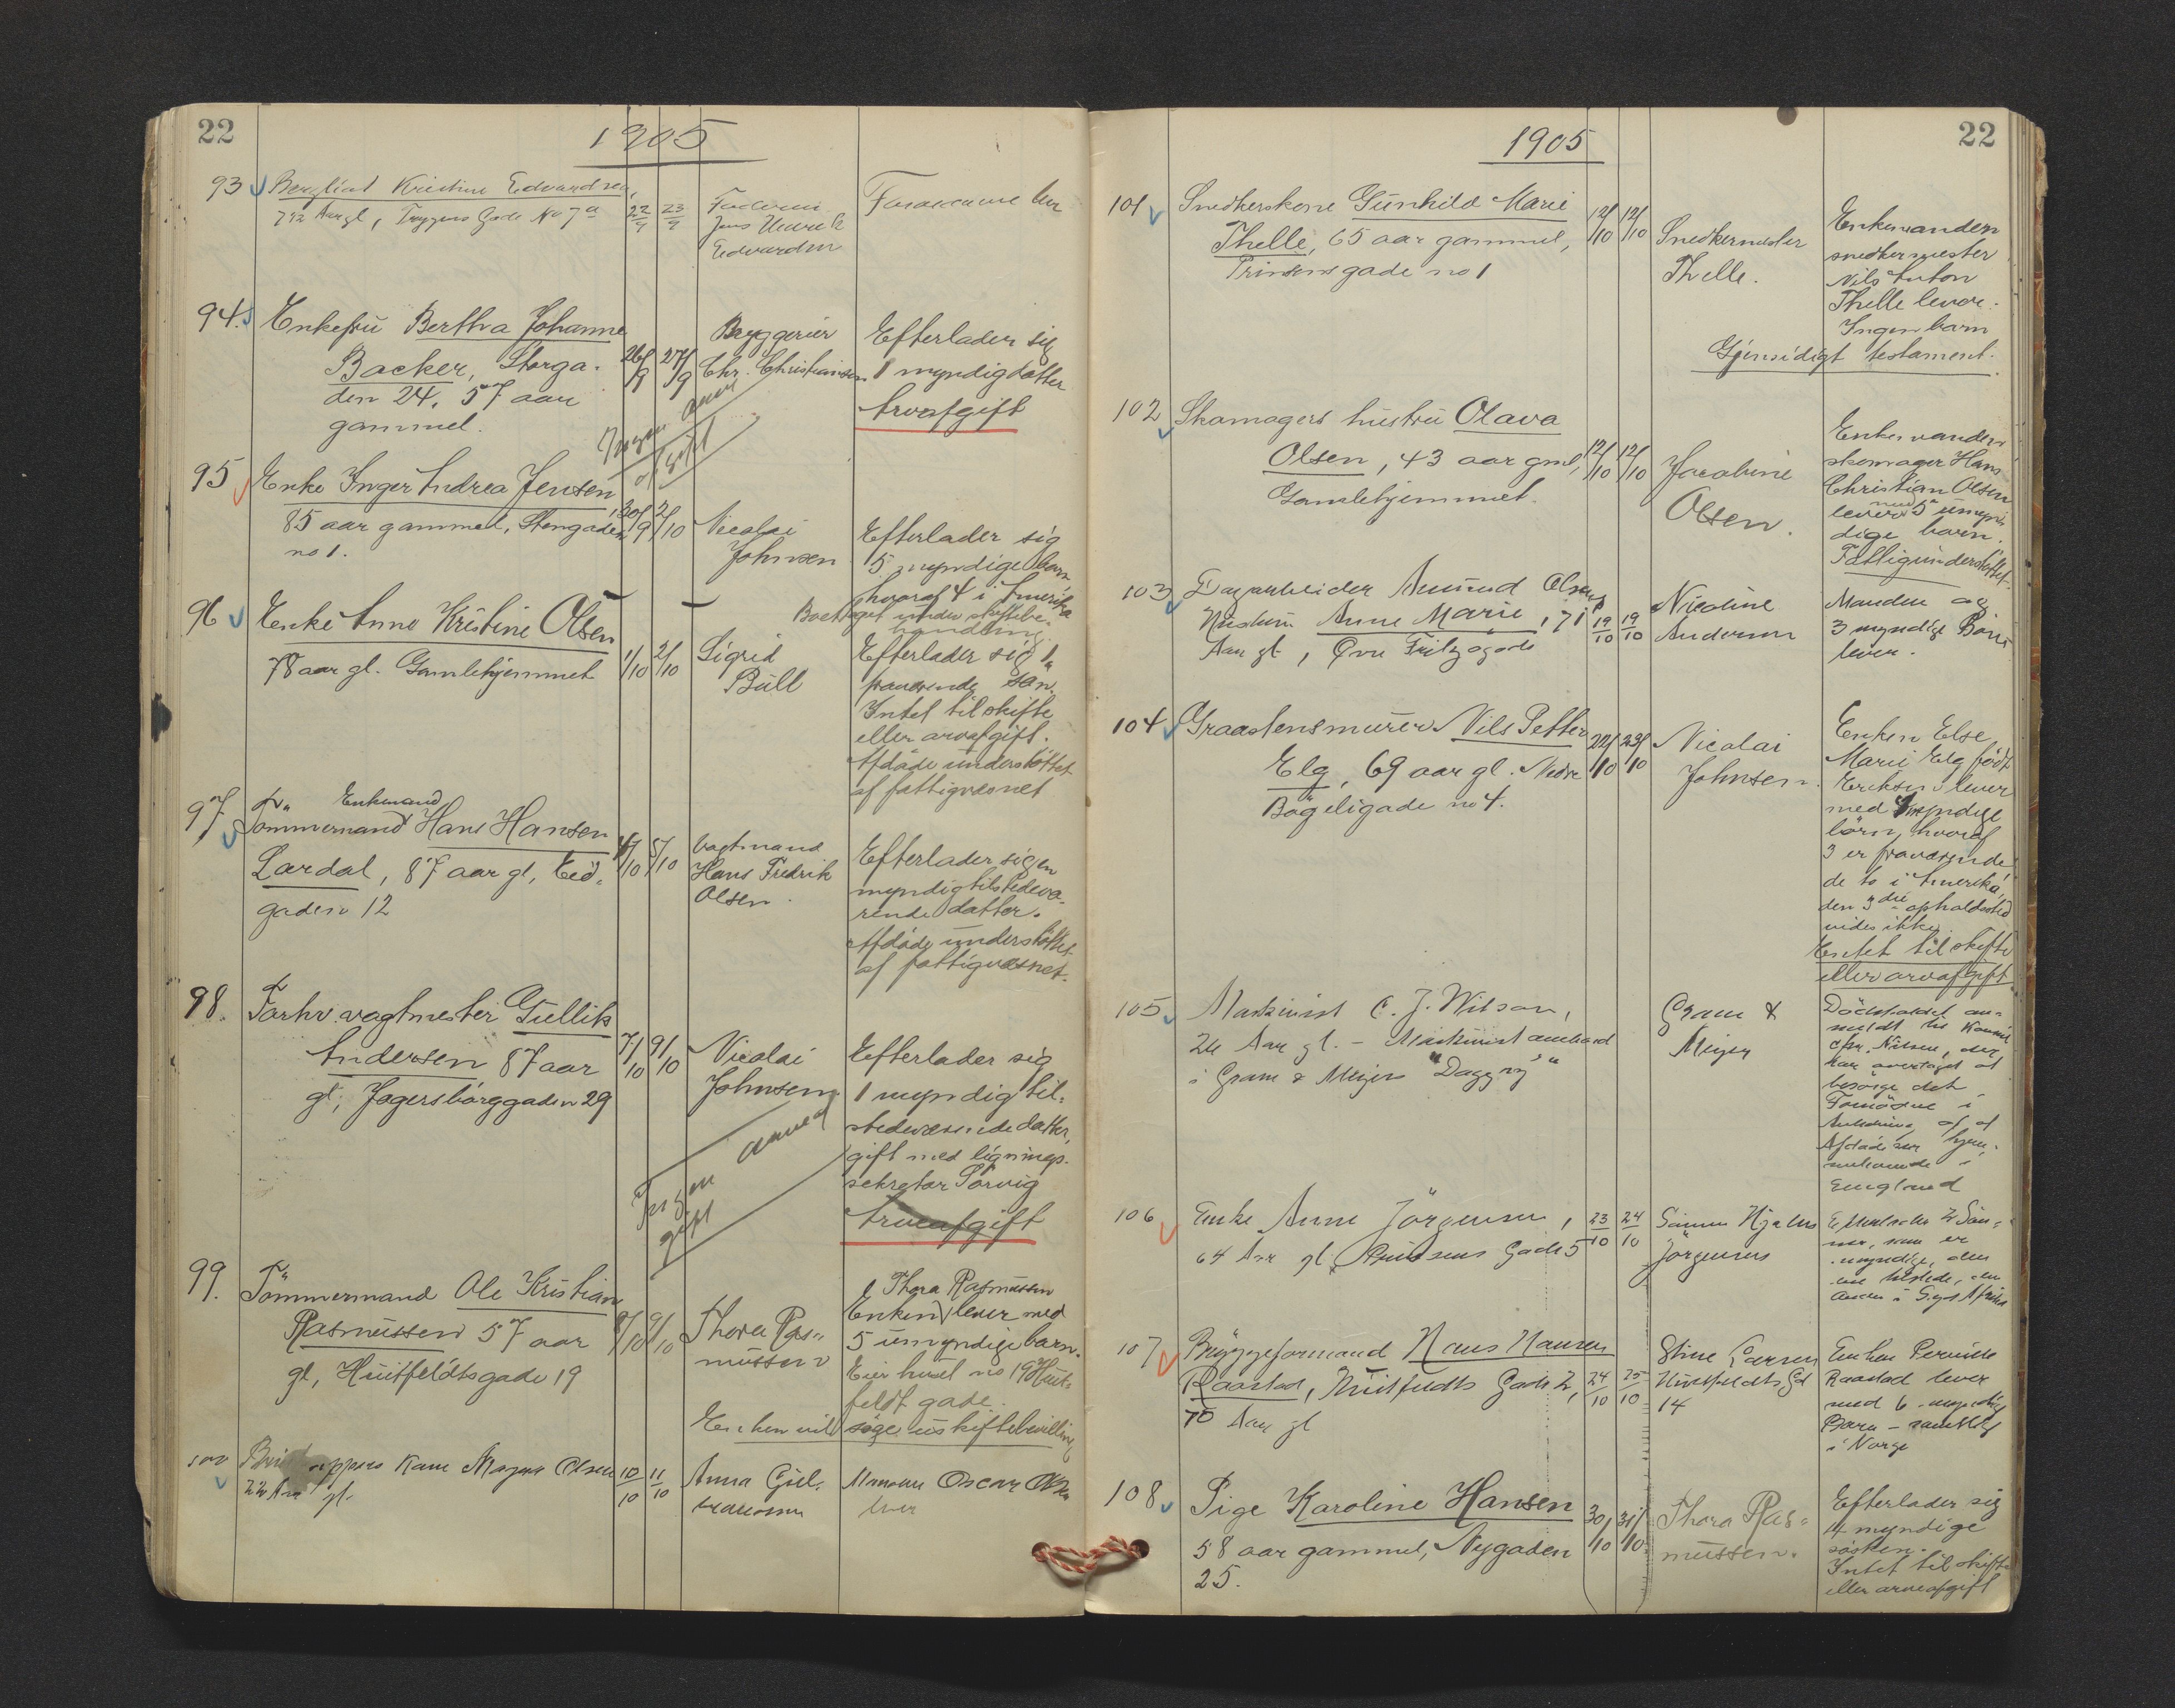 22
1905
93 Bergliot Kristine Edvardsen,
7 1/2 Aar gl, Tryggves Gade No 7a 22/9 23/9 Faderen
Jens Henrik
Edvardsen
Forældrene lever
94. Enkefru Bertha Johanne
Backer, Storga-
den 24, 57 aar
gammel.
26/9 27/9
Bryggerier
Chr. Christiansen
Efterlader sig
1 myndig datter
Arvafgift
Ingen anm
afgift
95 Enke Inger Andrea Jensen,
85 aar gammel, Stengaden
no 1.
30/9 2/10
Nicolai
Johnsen
Efterlader sig
5 myndige barn,
hvoraf 4 i Amerika
Boet taget under skiftebe-
handling.
96 Enke Anne Kristine Olsen
78 aar gl. Gamlehjemmet
1/10 2/10
Sigrid
Bull
Efterlader sig 1
fraværende søn.
Intet til skifte
eller arvafgift.
Afdøde understøttet
af fattigvæsnet
97 Enkemand
Tömmermand Hans Hansen
Lardal, 87 aar gl, Eid-
gaden 12
4/10 5/10
Vagtmand
Hans Fredrik
Olsen.
Efterlader sig en
myndig tilstedevæ-
rende datter.
Afdøde understøttet
af fattigvæsnet.
98. Forhv. vagtmester Gullik
Andersen 87 aar
gl, Jegersborggaden 29
7/10 9/10
Nicolai
Johnsen
Efterlader sig
1 myndig til-
stedeværende datter,
gift med lignings-
sekretær Sørvig
Arveafgift
Ingen anmed
gift
99. Tömmermand Ole Kristian
Rasmussen 57 aar
gl, Huitfeldtsgade 19
8/10 9/10
Thora Ras-
mussen
Thora Rasmussen
Enken lever med
5 umyndige barn.
Eier huset no 19 Huit-
feldt gade.
Enken vil søge uskiftebevilling
100 Kone Magna Olsen
22 Aar gl.
10/10 11/10
Anna Giel-
Manden Oscar Olsen
lever
22
1905
101 Snedkerskone Gunhild Marie
Thelle, 65 aar gammel,
Prinsensgade no 1
12/10 12/10
Snedkermester
Thelle.
Enkemanden
snedkermester
Nils Anton
Thelle lever.
Ingen barn
Gjensidigt testament.
102 Skomagers hustru Olava
Olsen, 43 aar gml,
Gamlehjemmet.
12/10 12/10
Jacobine
Olsen.
Enkemanden
skomager Hans
Christian Olsen
lever med 5 umyn-
dige barn.
Fattigunderstøttet.
103 Dagarbeider Amund Olsens
Hustru Anne Marie, 71
Aar gl, Övre Fritzøgade
19/10 19/10
Nicoline
Andersen
Manden og
3 myndige Börn
lever.
104 Graastensmurer Nils Petter
Elg, 69 aar gl. Nedre
Bøgeligade no 4.
22/10 23/10
Nicolai
Johnsen.
Enken Else
Marie Elg født
Eriksen lever
med 4 myndige
børn, hvoraf
3 er fraværende
de to i Amerika,
den 3die opholdssted
vides ikke.
Intet til skifte
eller arvafgift
105 Maskinist C. J. Wilson,
24 Aar gl. - Maskinist ombord
i Gram & Meijers "Dagny"
Gram &
Meijer
Dödsfaldet an-
meldt til Konsul
Chr. Nilsen, der
har overtaget at
besørge det
Fornödne i
Anledning af at
Afdöde var hjem-
mehørende i
England
106 Enke Anne Jörgensen,
64 Aar gl, Prinsens Gade 5
23/10 24/10
Sönnen Hjalmar
Jörgensen
Efterlader 2 Søn-
ner, som er
myndige, den
ene tilstede, den
anden i Syd Afrika
107 Bryggeformand Hans Hansen
Raastad, Huitfeldts Gade 2,
70 Aar gl
24/10 25/10
Stine Larsen
Huitfeldts Gd
14
Enken Pernille
Raastad lever
med 6 myndige
Barn - samtlige
i Norge
108 Pige Karoline Hansen
58 aar gammel, Nygaden
25.
30/10 31/10
Thora Ras-
mussen.
Efterlader sig
4 myndige
søsken.
Intet til skifte
eller arveafgift